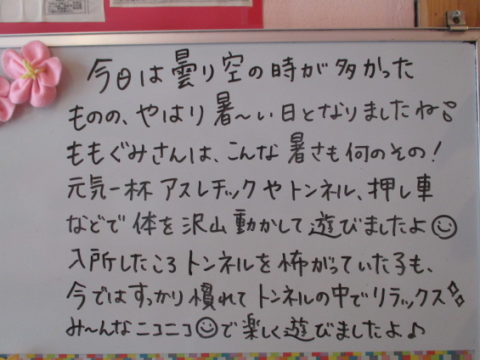 今日は曇り空の時が多かった
ものの、やはり暑〜い日となりましたね♪
ももぐみさんは、こんな暑さも何のその!
元気一杯アスレチックやトンネル、押し車
などで体を沢山動かして遊びましたよ☺
入所したころトンネルを怖がっていた子も、
今ではすっかり慣れてトンネルの中でリラックス✨
み〜んなニコニコ☺で楽しく遊びましたよ♪